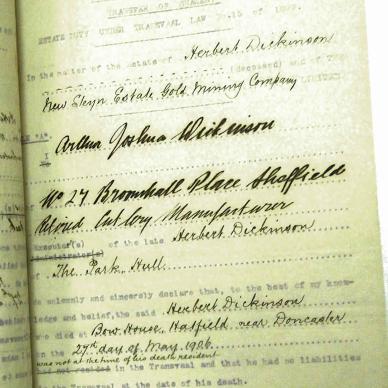 TRANSFER OF SHARES.
ESTATE DUTY UNDER TRANSVAAL LAW No.15 of 1899.
In the matter of the Estate of Herbert Dickinson
(deceased) and of THE
New Steyn Estate Gold Mining Company LIMITED
I
Arthur Joshua Dickinson
No 27 Broomhall Place Sheffield
Retired Cutlery Manufacturer
Executor(s) of the late Herbert Dickinson
Administrator(s)
of The Park, Hull
do solemnly and sincerely declare that, to the best of my know-
ledge and belief, the said Herbert Dickinson
who died at Bow House, Hatfield near Doncaster
27th day of May 1906
was not at the time of his death resident
not resided in the Transvaal and that he had no liabilities
in the Transvaal at the date of his death.